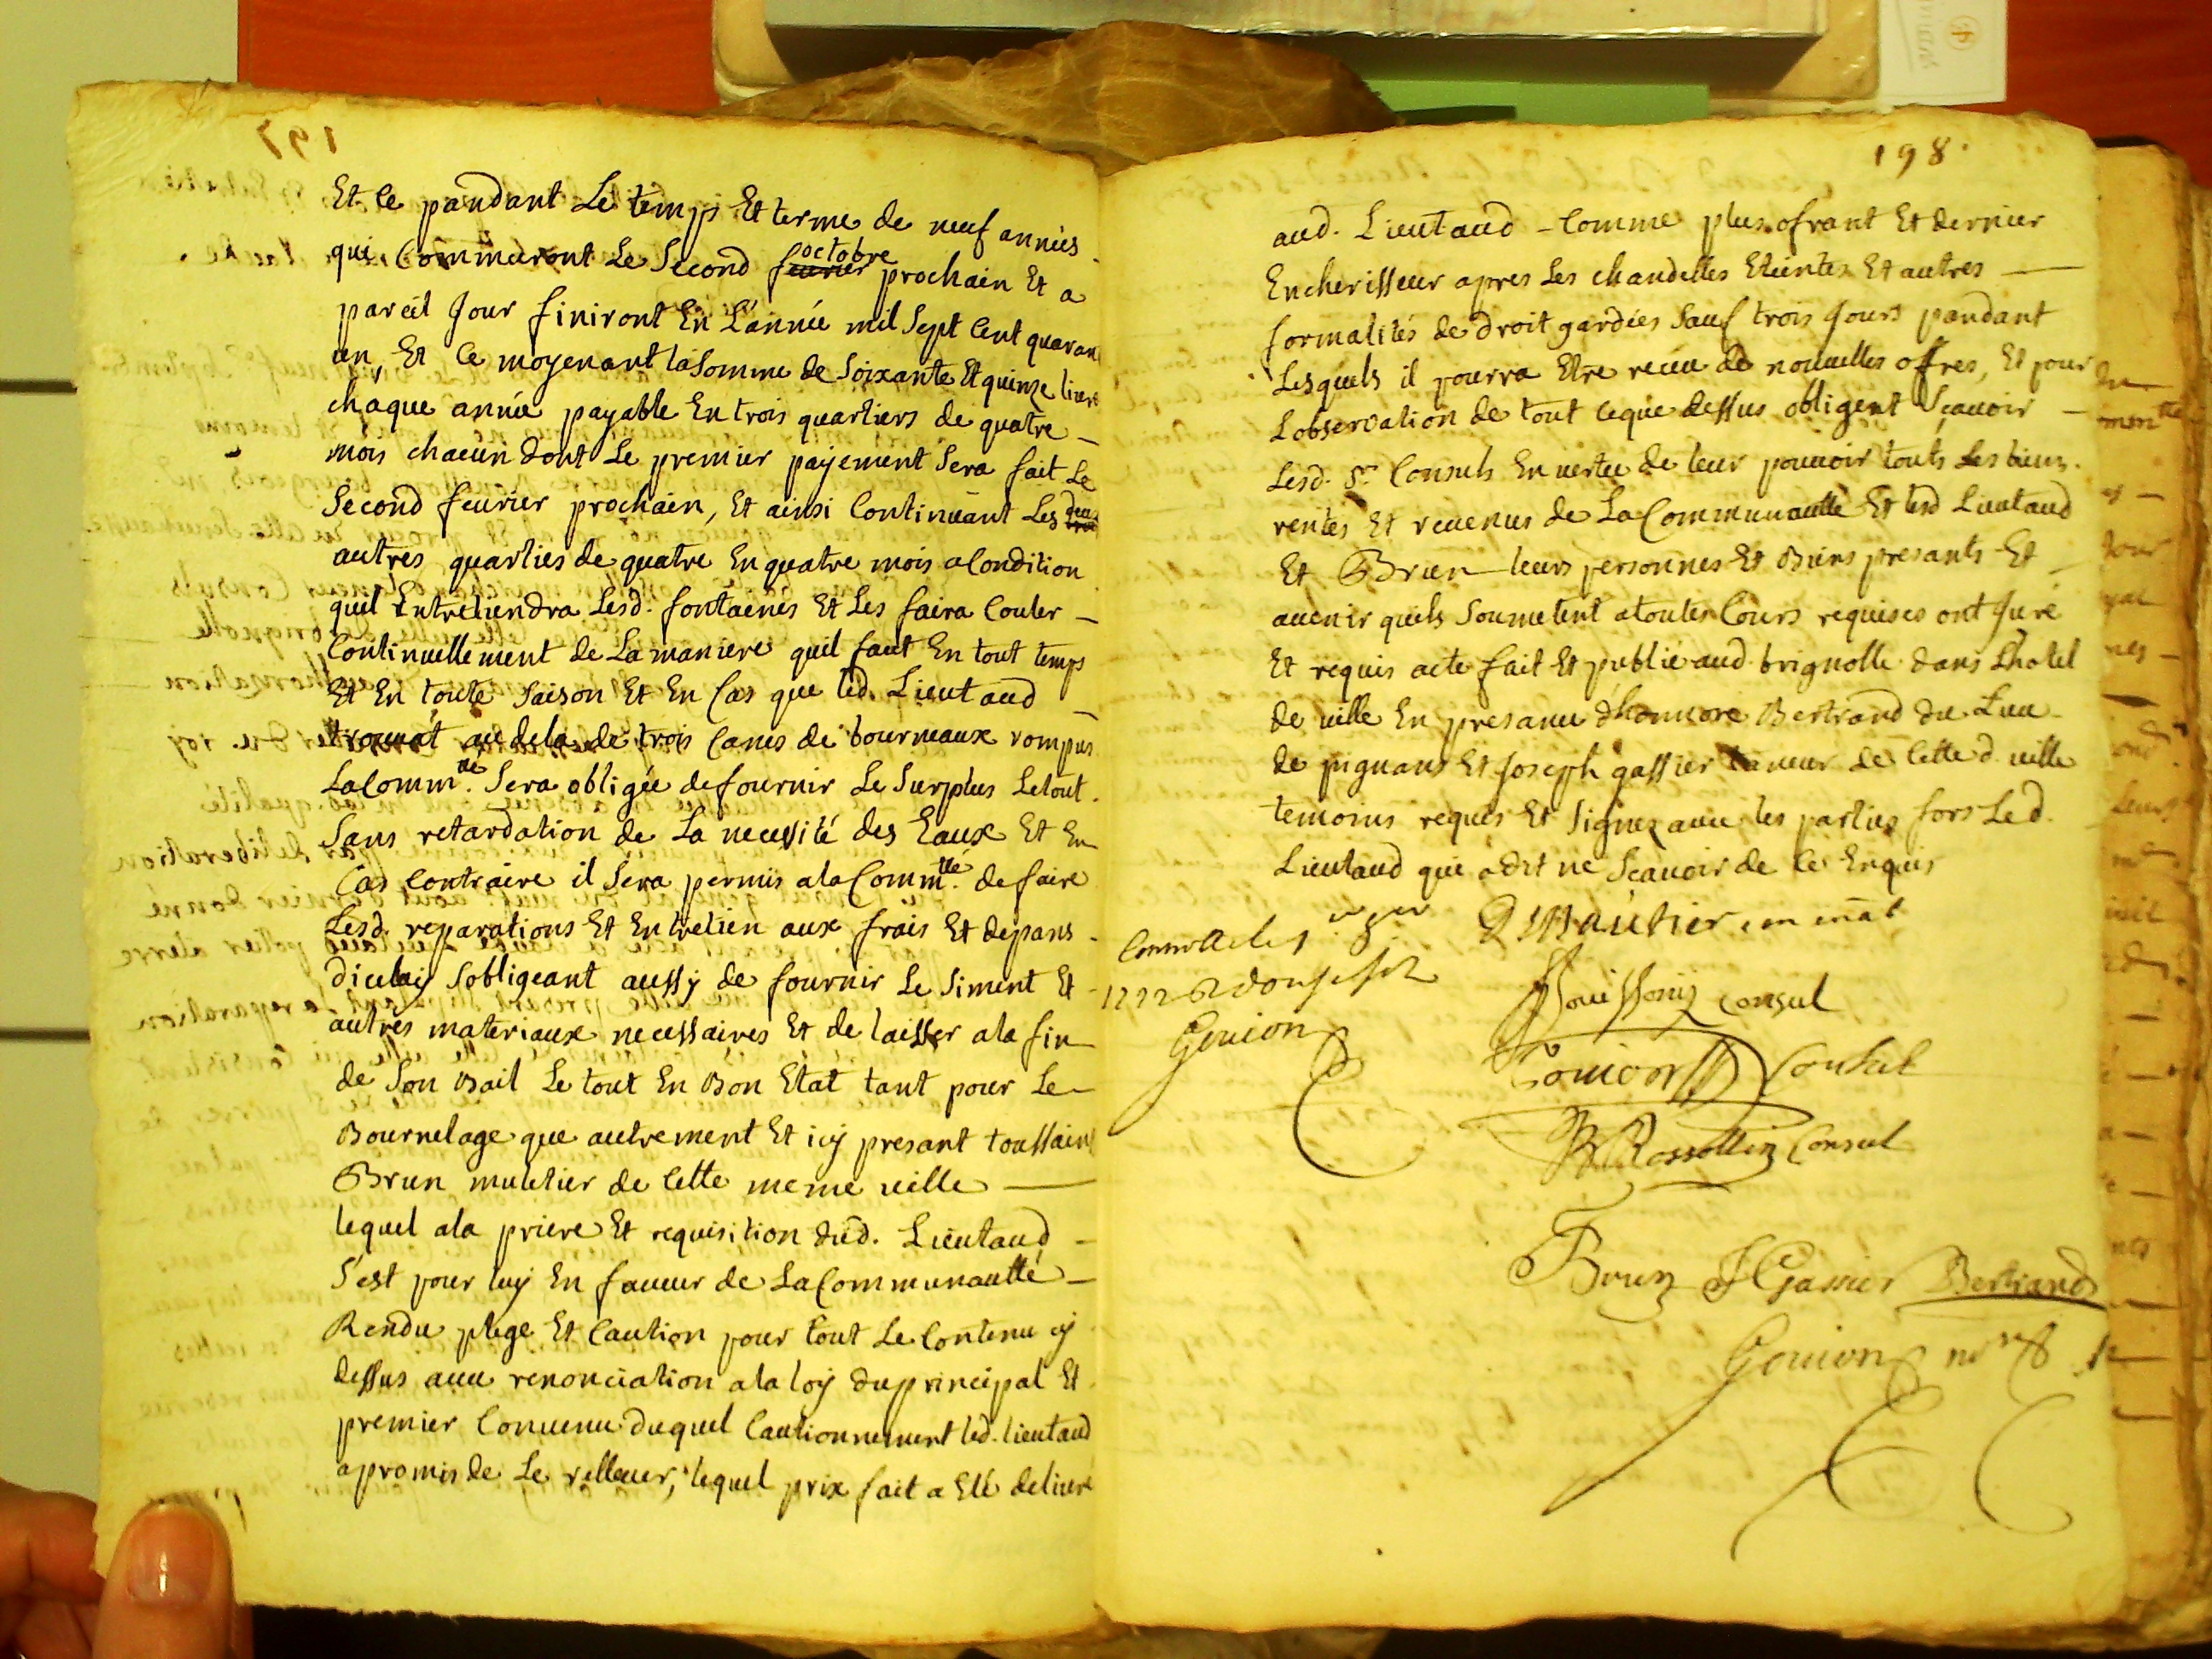 Et ce pandant Le temps Et terme de neuf années
qui Commenceront Le Second feurier octobre prochain Et a
pareil Jour finiront En L'année mil Sept Cent quaran
un, Et Ce moyenant la Somme de Soixante Et quinze liures
chaque année payable En trois quartiers de quatre
mois chacun dont Le premier payement Sera fait Le
Second feurier prochain, Et ainsi Continuant Les deux
autres quarties de quatre En quatre mois a Condition
quil Entretiendra Lesd. fontaenes Et Les faira Couler
Continuellement de La maniere quil faut En tout temps
Et En toute Saison Et En Cas que led. Lieutaud
trouuat au dela de trois Canes de bourneaux rompus
La Comm.té Sera obligée de fournir Le Surplus Le tout
Sans retardation de La necessité des Eaux Et En
Cas Contraire il Sera permis a la Comm.tte de faire
Lesd. reparations Et Entretien aux frais Et depans
dicelny Sobligeant aussy de fournir Le Siment Et
autres materiaux necessaires Et de laisser a la fin
de Son Bail Le tout En Bon Etat tant pour Le
Bournelage que autrement Et icy presant toussaint
Brun muletier de Cette meme uille
lequel a la priere Et requisition dud. Lieutaud
S'est pour luy En faueur de La Communautté
Rendu plege Et Caution pour tout Le Contenu cy
dessus auec renonciation a la loy du principal Et
premier Conuenu duquel Cautionnement led. lieutaud
a promis de Le relleuer, lequel prix fait a Eté deliure
198.
aud. Lieutaud Comme plus ofrant Et dernier
Encherisseur apres Les chandelles Eteintes Et autres
formalités de droit gardées Sauf trois Jours pandant
Lesquels il pourra Etre receu de nouuelles offres, Et pour
Lobservation de tout ceque dessus obligent Sçauoir
Lesd. Srs Consuls En uertu de leur pouuoir touts Les biens
rentes Et reuenus de La Communautte Et led Lieutaud
Et Brun leurs personnes Et Biens presants Et
auenir quils Soumetent a toutes Cours requises ont Juré
Et requis acte fait Et publié aud. brignolle dans Lhotel
de uille En presance d'honnore Bertrand du Lieu
de pignans Et Joseph gassier taneur de Cette d. uille
temoins requis Et Signez auec les parties fors Led.
Lieutaud qui a dit ne Scauoir de Ce Enquis
Gouion
Consul
Consul
Rossollin Consul
Brun JGassier Bertrand
Gouion